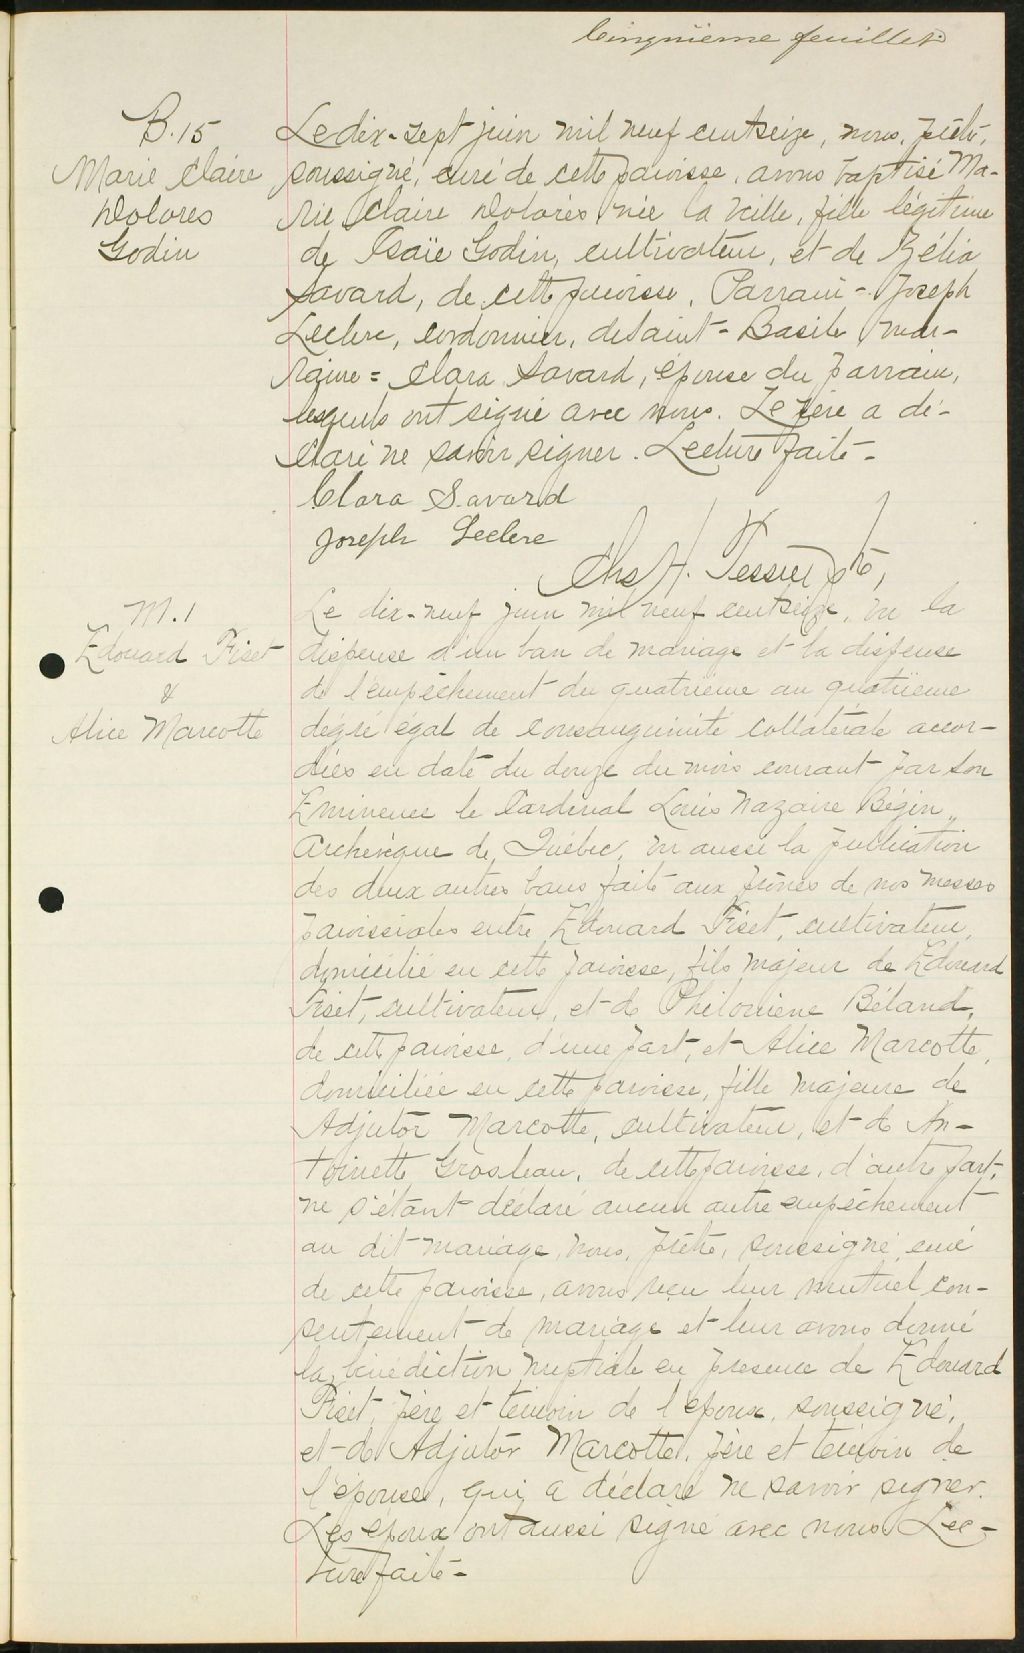 Cinquième feuillet.
B. 15
Marie Claire
Dolores
Godin
Le dix-sept juin mil neuf cent seize, nous, prêtre,
soussigné, curé de cette paroisse, avons baptisé Ma-
rie Claire Dolorès née la veille, fille légitime
de Isaïe Godin, cultivateur, et de Zélia
Savard, de cette paroisse. Parrain - Joseph
Leclerc, cordonnier, de Saint-Basile, mar-
raine = Clara Savard, épouse du parrain,
lesquels ont signé avec nous. Le père a dé-
claré ne savoir signer. Lecture faite -
Clara Savard
Joseph Leclerc
Chs H. Tessier ptre,
M. 1
Edouard Fiset
&
Alice Marcotte
Le dix-neuf juin mil neuf cent seize, vu la
dispense d'un ban de mariage et la dispense
de l'empêchement du quatrième au quatrième
degré égal de consanguinité collatérale accor-
dées en date du douze du mois courant par Son
Eminence le Cardinal Louis Nazaire Bégin,
Archevêque de Québec, vu aussi la publication
des deux autres bans faite aux prônes de nos messes
paroissiales entre Edouard Fiset, cultivateur,
domicilié en cette paroisse, fils majeur de Edouard
Fiset, cultivateur, et de Philomène Béland,
de cette paroisse, d'une part, et Alice Marcotte,
domiciliée en cette paroisse, fille majeure de
Adjutor Marcotte, cultivateur, et de An-
toinette Grosleau, de cette paroisse, d'autre part,
ne s'étant déclaré aucun autre empêchement
au dit mariage, nous, prêtre, soussigné, curé
de cette paroisse, avons reçu leur mutuel con-
sentement de mariage et leur avons donné
la bénédiction nuptiale en présence de Edouard
Fiset, père et témoin de l'époux, soussigné,
et de Adjutor Marcotte, père et témoin de
l'épouse, qui a déclaré ne savoir signer.
Les époux ont aussi signé avec nous. Lec-
ture faite -